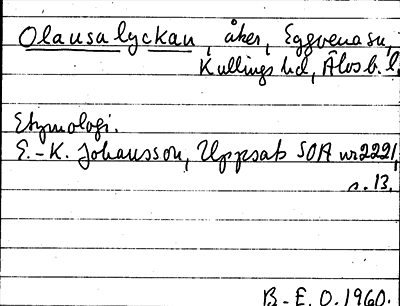 Olausalyckan, åker, Eggvena sn,
Kullings hd, Älvsb. l.
Etymologi.
E.-K. Johansson, Uppsats SOA nr 2221,
s. 13.
B.-E. O. 1960.